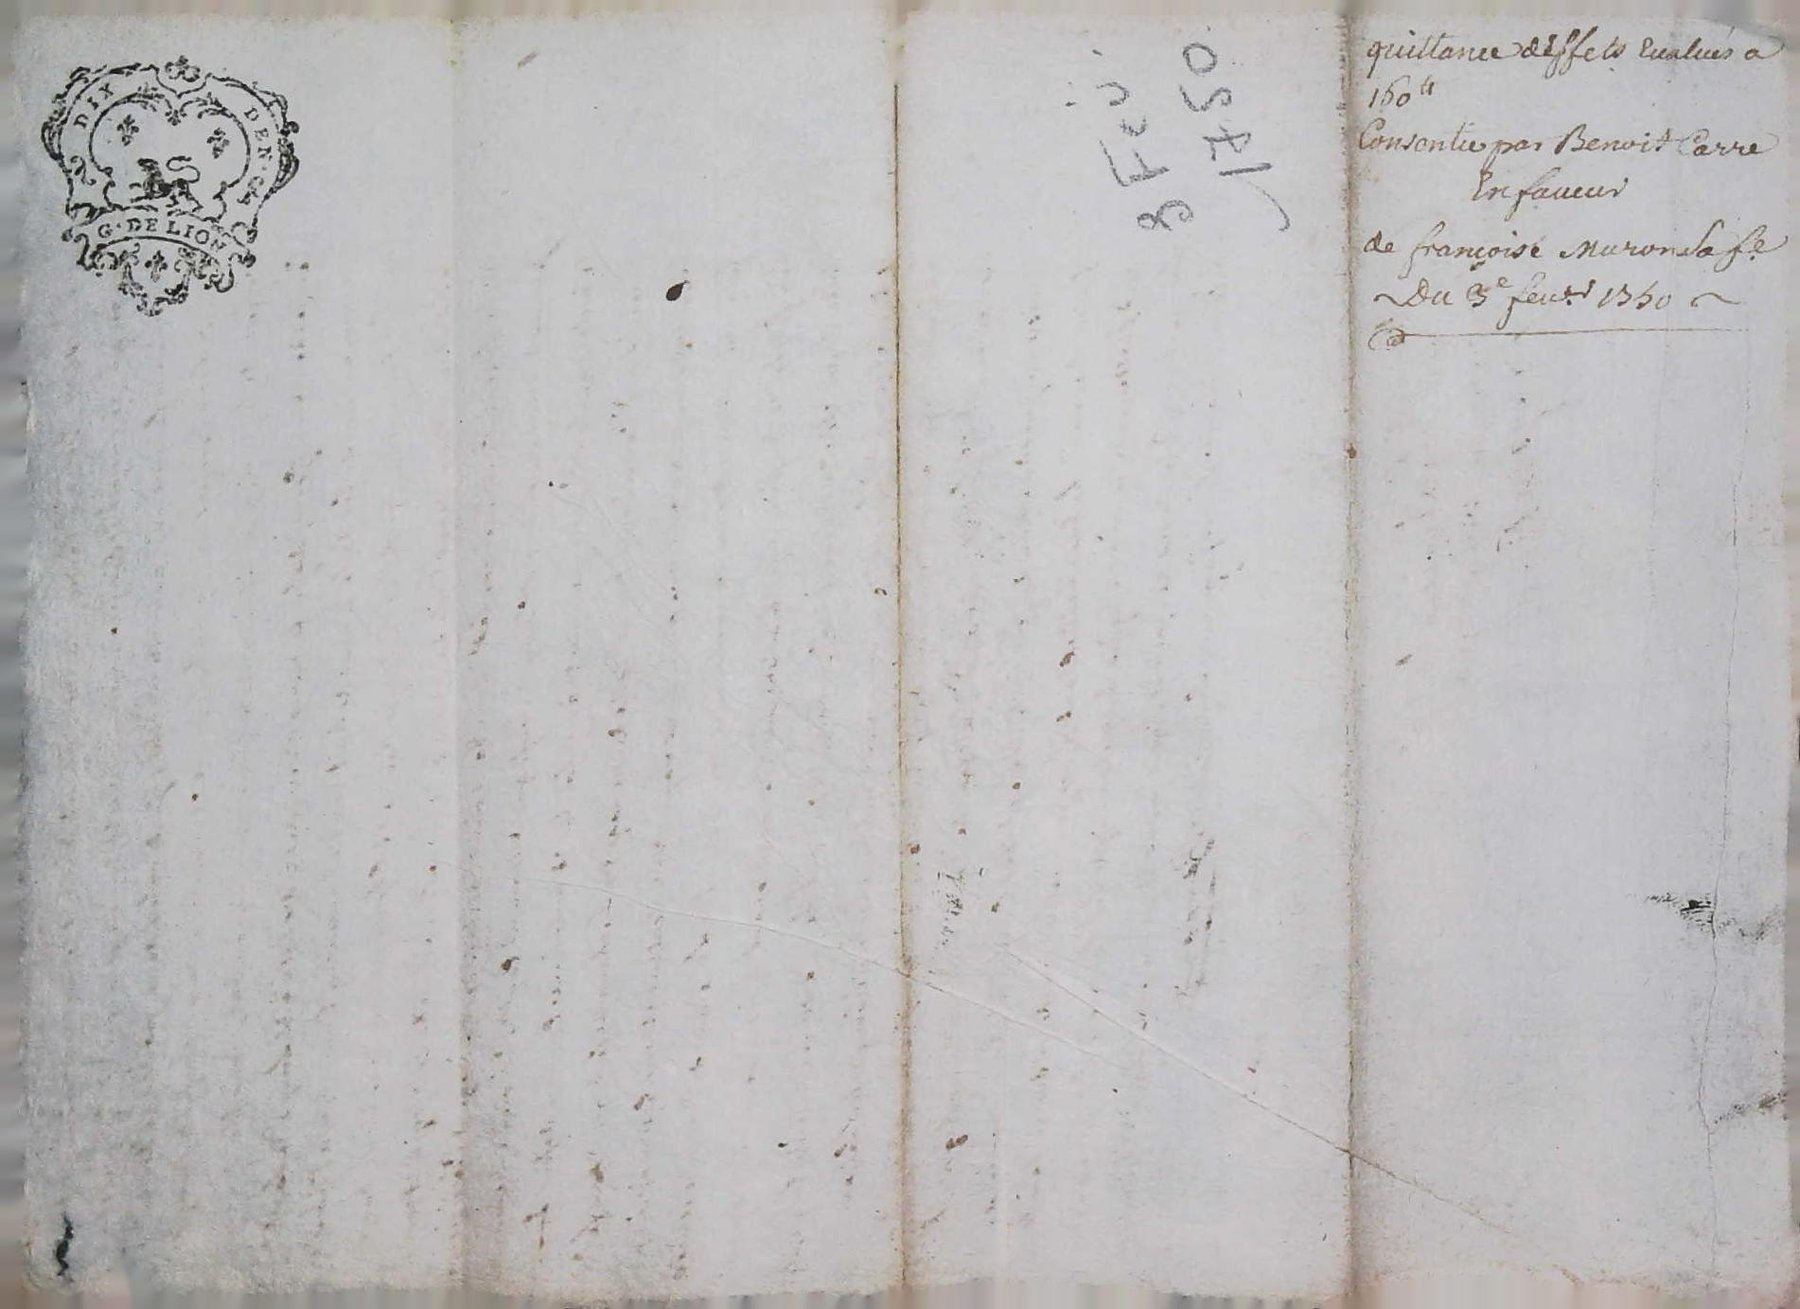 DIX DEN. G. DE LION
8 Fev.
1750
quittance d'effets Evalués a
160tt
Consentie par Benoit Carre
En faveur
de françoise Muron sa fe
Du 3e fevr 1750